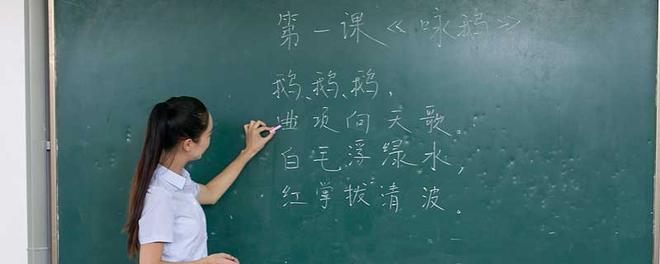 第一课《咏鹅》
鹅、鹅、鹅，
曲项向天歌。
白毛浮绿水，
红掌拔清波。